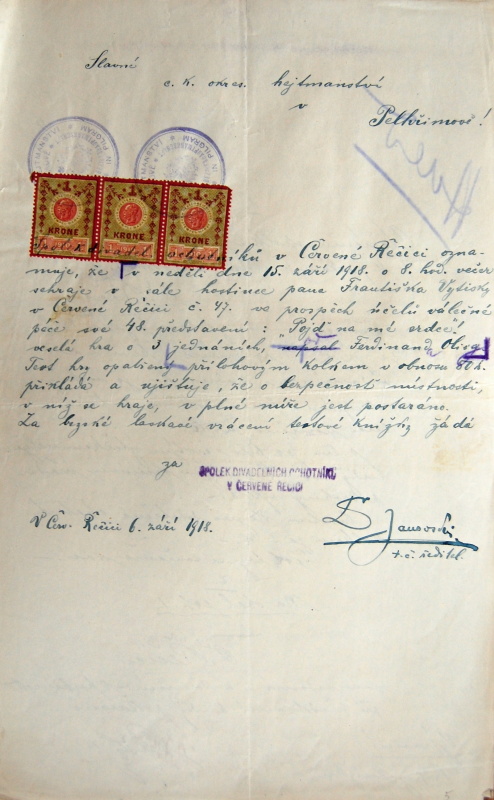 Slavné
c. k. okres. hejtmanství
v
Pelhřimově!
1 1 1
KRONE KRONE KRONE
Spolek divadel. ochotníků v Červené Řečici ozna-
muje, že v neděli dne 15. září 1918. o 8. hod. večer
sehraje v sále hostince pana Františka Vytisky
v Červené Řečici č. 47. ve prospěch účelů válečné
péče své 48. představení: "Pojď na mé srdce!"
veselá hra o 3 jednáních, napsal Ferdinand
Text hry opatřený přílohovým kolkem v obnosu 80 h.
přikládá a ujišťuje, že o bezpečnosti místností,
v níž se hraje, v plné míře jest postaráno.
Za brzké laskavé vrácení textové knížky žádá
za
SPOLEK DIVADELNÍCH OCHOTNÍKŮ
V ČERVENÉ ŘEČICI
V Červ. Řečici 6. září 1918.
t. č. ředitel.